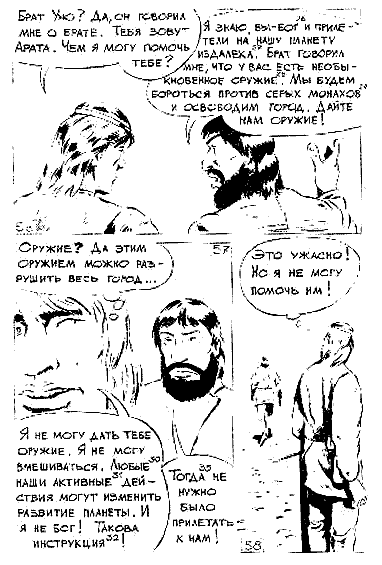 Брат Уно? Да, он говорил
мне о брате. Тебя зовут
Арата. Чем я могу помочь
тебе?
Я знаю, вы-бог²⁶ и приле-
тели на нашу планету
издалека. Брат говорил
мне, что у вас есть необы-
кновенное оружие. Мы будем
бороться против серых монахов
и освободим город. Дайте
нам оружие!
57
Оружие? Да этим
оружием можно раз-
рушить весь город...
Я не могу дать тебе
оружие. Я не могу
вмешиваться³⁰. Любые
наши активные³¹ дей-
ствия могут изменить
развитие планеты. И
я не бог! Такова
инструкция³²!
Тогда³³ не
нужно
было
прилетать
к нам!
Это ужасно!
Но я не могу
помочь им!
58